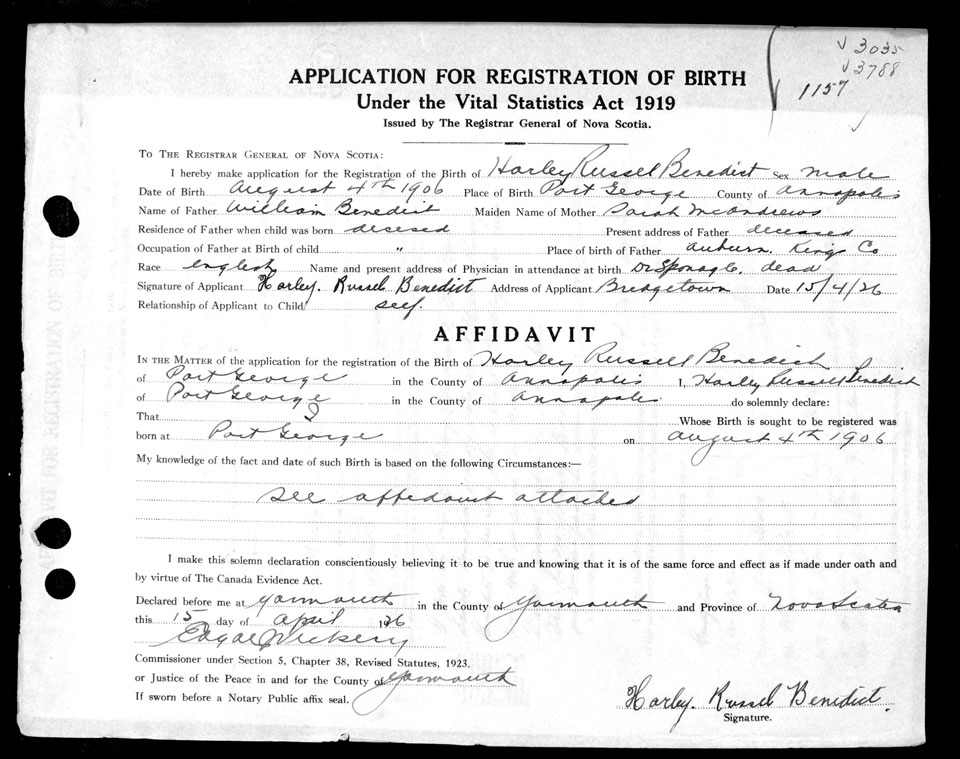 √ 3035
√ 3788
1157
APPLICATION FOR REGISTRATION OF BIRTH
Under the Vital Statistics Act 1919
Issued by The Registrar General of Nova Scotia.
To The Registrar General of Nova Scotia:
I hereby make application for the Registration of the Birth of Harley Russel Benedict Sex male
Date of Birth August 4th 1906 Place of Birth Port George County of Annapolis
Name of Father William Benedict Maiden Name of Mother Sarah McAndrews
Residence of Father when child was born decesed Present address of Father deceased
Occupation of Father at Birth of child " Place of birth of Father Auburn Kings Co
Race english Name and present address of Physician in attendance at birth Dr Sponagle. dead
Signature of Applicant Harley. Russel Benedict Address of Applicant Bridgetown Date 15/4/26
Relationship of Applicant to Child self.
AFFIDAVIT
In the Matter of the application for the registration of the Birth of Harley Russell Benedict
of Port George in the County of Annapolis I, Harley Russell Benedict
of Port George in the County of Annapolis do solemnly declare:
That I Whose Birth is sought to be registered was
born at Port George on August 4th 1906
My knowledge of the fact and date of such Birth is based on the following Circumstances:—
see affedavit attached
I make this solemn declaration conscientiously believing it to be true and knowing that it is of the same force and effect as if made under oath and
by virtue of The Canada Evidence Act.
Declared before me at Yarmouth in the County of Yarmouth and Province of Nova Scotia
this 15 day of April 1926
Commissioner under Section 5, Chapter 38, Revised Statutes, 1923.
or Justice of the Peace in and for the County of Yarmouth
If sworn before a Notary Public affix seal.
Harley. Russel Benedict.
Signature.